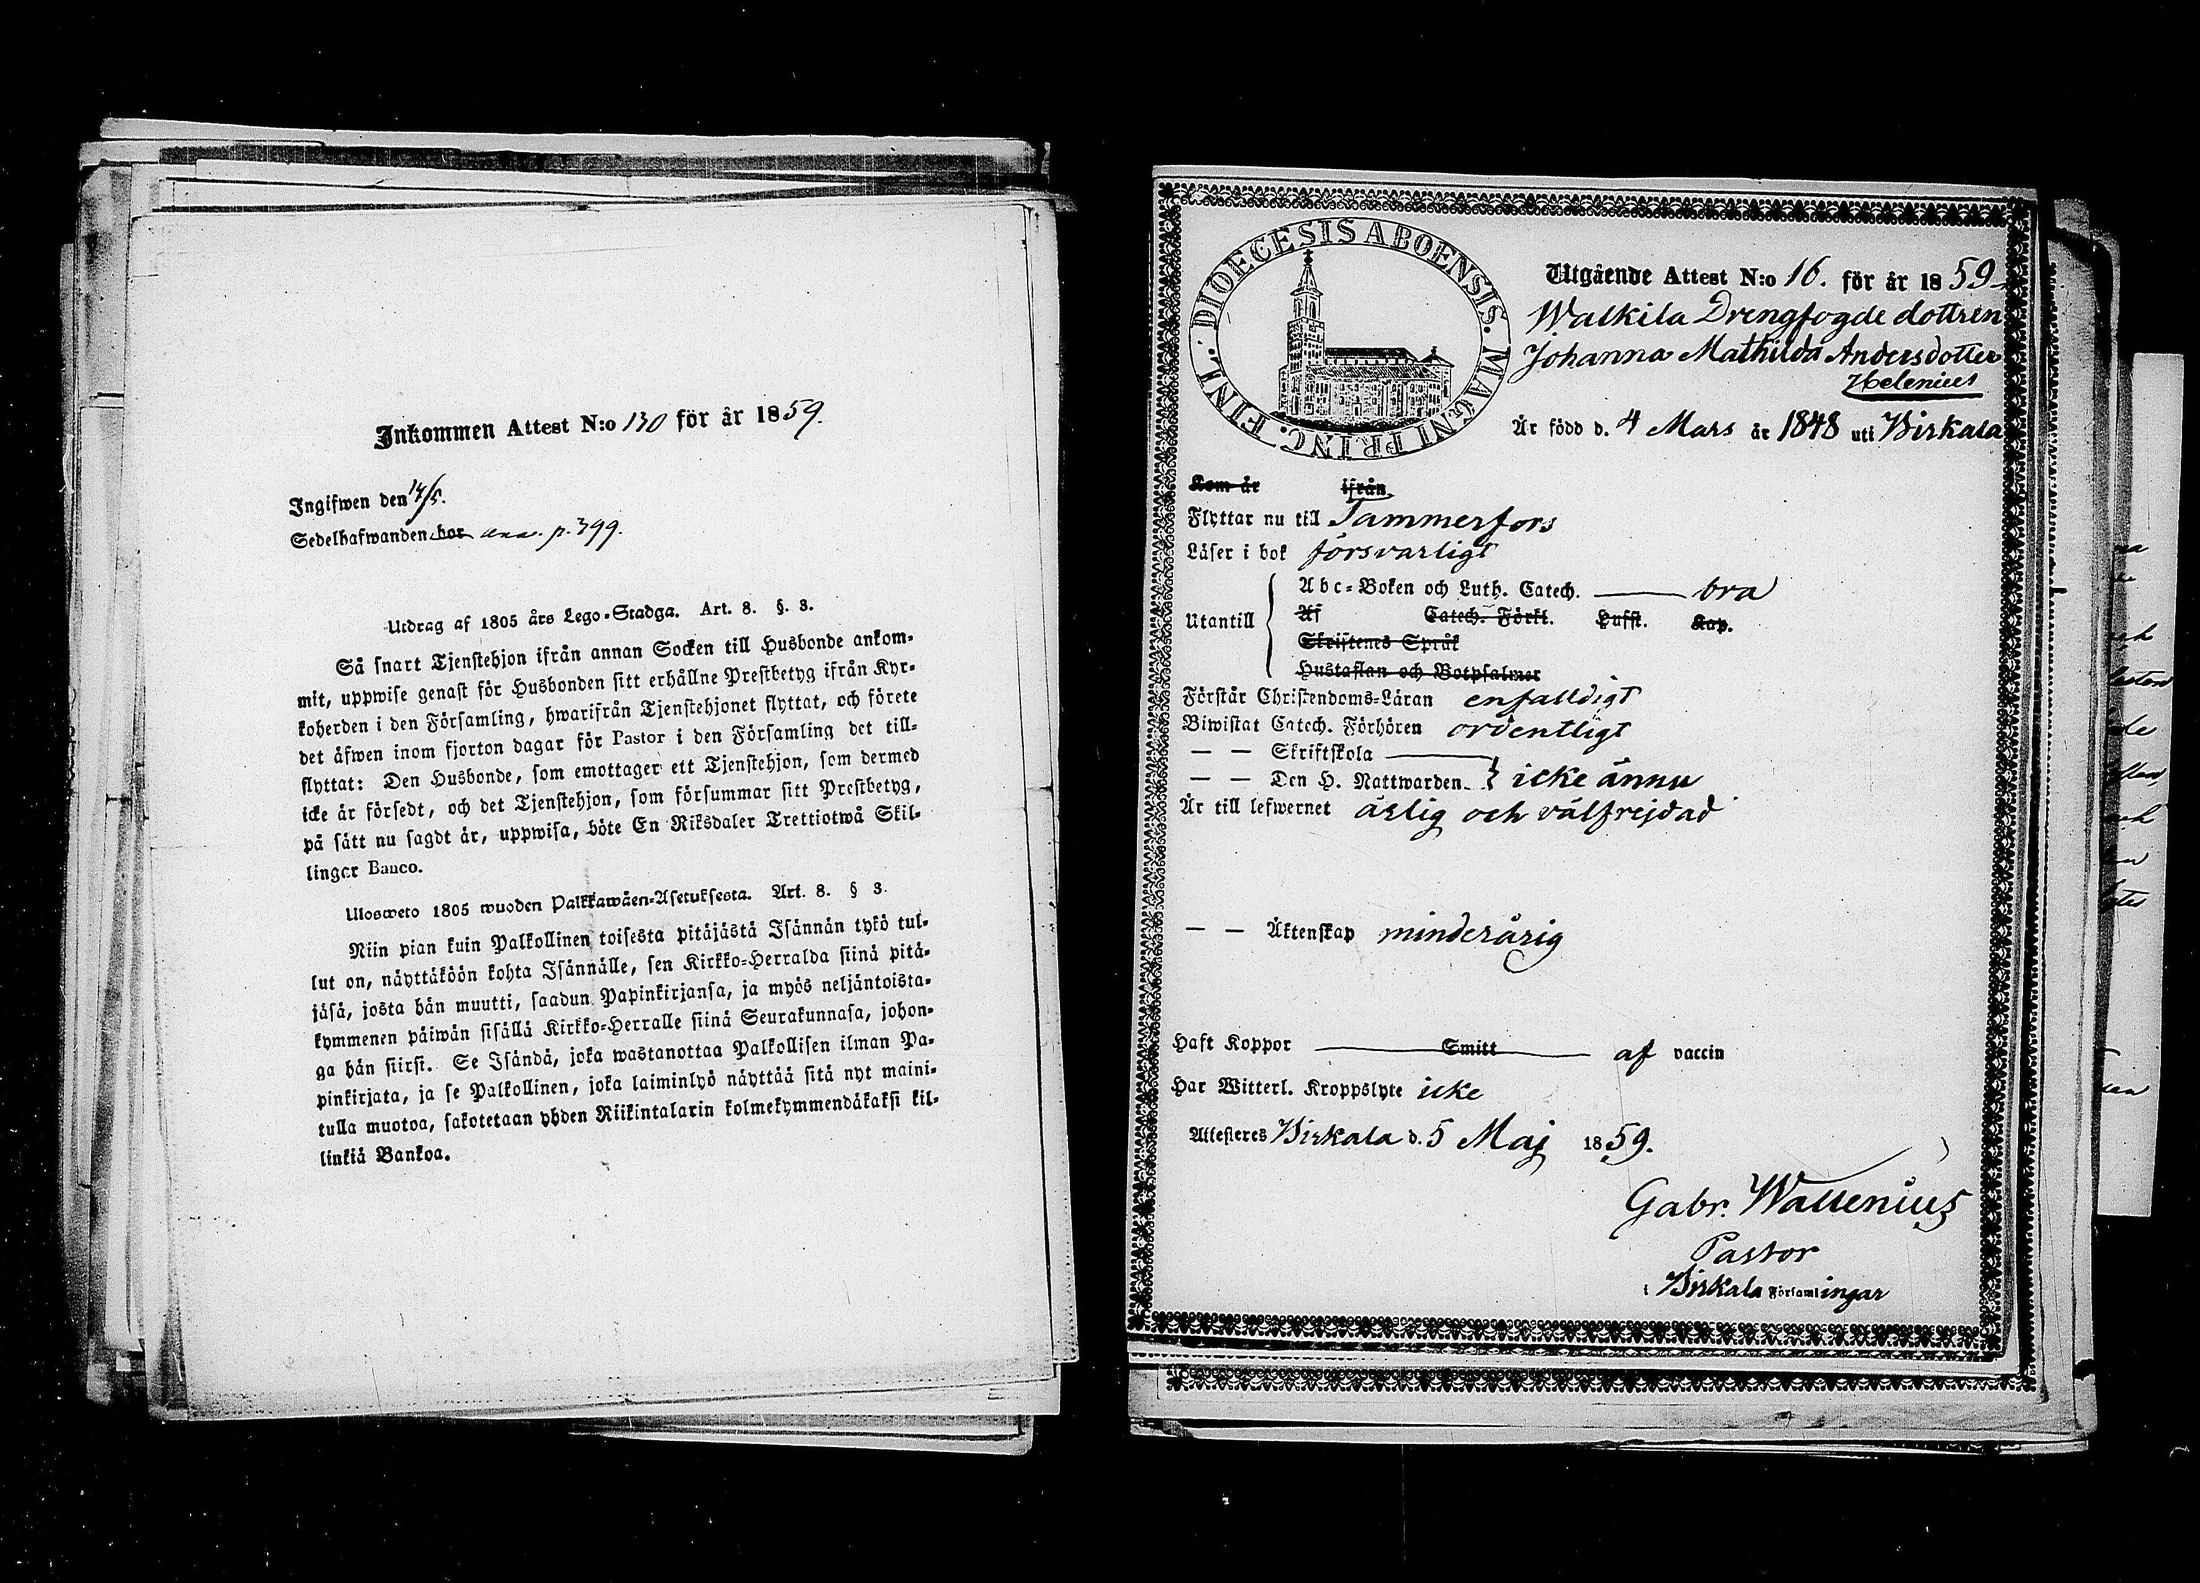 Inkommen Attest N:o 130 för år 1859.
Ingifwen den 14/5.
Sedelhafwanden bor ann. p. 399.
Utdrag af 1805 års Lego-Stadga. Art. 8. §. 3.
Så snart Tjenstehjon ifrån annan Socken till Husbonde ankom-
mit, uppwise genast för Husbonden sitt erhållne Prestbetyg ifrån Kyr-
koherden i den Församling, hwarifrån Tjenstehjonet flyttat, och förete
det äfwen inom fjorton dagar för Pastor i den Församling det till-
flyttat: Den Husbonde, som emottager ett Tjenstehjon, som dermed
icke är försedt, och det Tjenstehjon, som försummar sitt Prestbetyg,
på sätt nu sagdt är, uppwisa, böte En Riksdaler Trettiotwå Skil-
lingar Banco.
Ulosweto 1805 wuoden Palkkawäen-Asetuksesta. Art. 8. § 3.
Niin pian kuin Palkollinen toisesta pitäjästä Isännän tykö tul-
lut on, näyttäköön kohta Isännälle, sen Kirkko-Herralda siinä pitä-
jäsä, josta hän muutti, saadun Papinkirjansa, ja myös neljäntoista-
kymmenen päiwän sisällä Kirkko-Herralle siinä Seurakunnasa, johon-
ga hän siirsi. Se Isändä, joka wastanottaa Palkollisen ilman Pa-
pinkirjata, ja se Palkollinen, joka laiminlyö näyttää sitä nyt maini-
tulla muotoa, sakotetaan yhden Riikintalarin kolmekymmendäkaksi kil-
linkiä Bankoa.
DIOECESIS ABOENSIS. MAGNI PRINC. FINL.
Utgående Attest N:o 16. för år 1859
Walkila Drengfogde dottren
Johanna Mathilda Andersdotter
Helenius
Är född d. 4 Mars år 1848 uti Birkala
Kom år ifrån
Flyttar nu till Tammerfors
Läser i bok försvarligt
Utantill
Abc-Boken och Luth. Catech. bra
Af Catech. Förkl. Hufst. Kap.
Skriftenes Språk
Hustaflan och Botpsalmer
Förstår Christendoms-Läran enfalldigt
Biwistat Catech. Förhören ordentligt
— — Skriftskola
— — Den H. Nattwarden. icke ännu
Är till lefwernet ärlig och välfrejdad
— — Äktenskap minderårig
Haft Koppor Smitt af vaccin
Har Witterl. Kroppslyte icke
Attesteres Birkala d. 5 Maj 1859.
Gabr. Wallenius
Pastor
i Birkala Församlingar